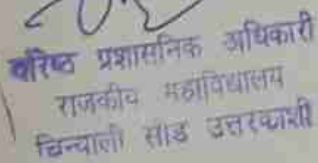 वरिष्ठ प्रशासनिक अधिकारी
राजकीय महाविद्यालय
चिन्याली सौड उत्तरकाशी